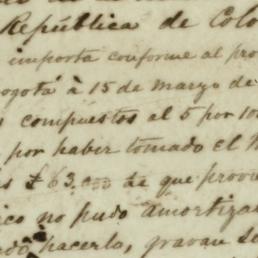 República de Colo
importa conforme al pro
ogotá á 15 de Marzo de
s compuestos al 5 por 10
por haber tomado el
£ 63.000 de que provi
ico no pudo amortiza
hacerlo, gravan